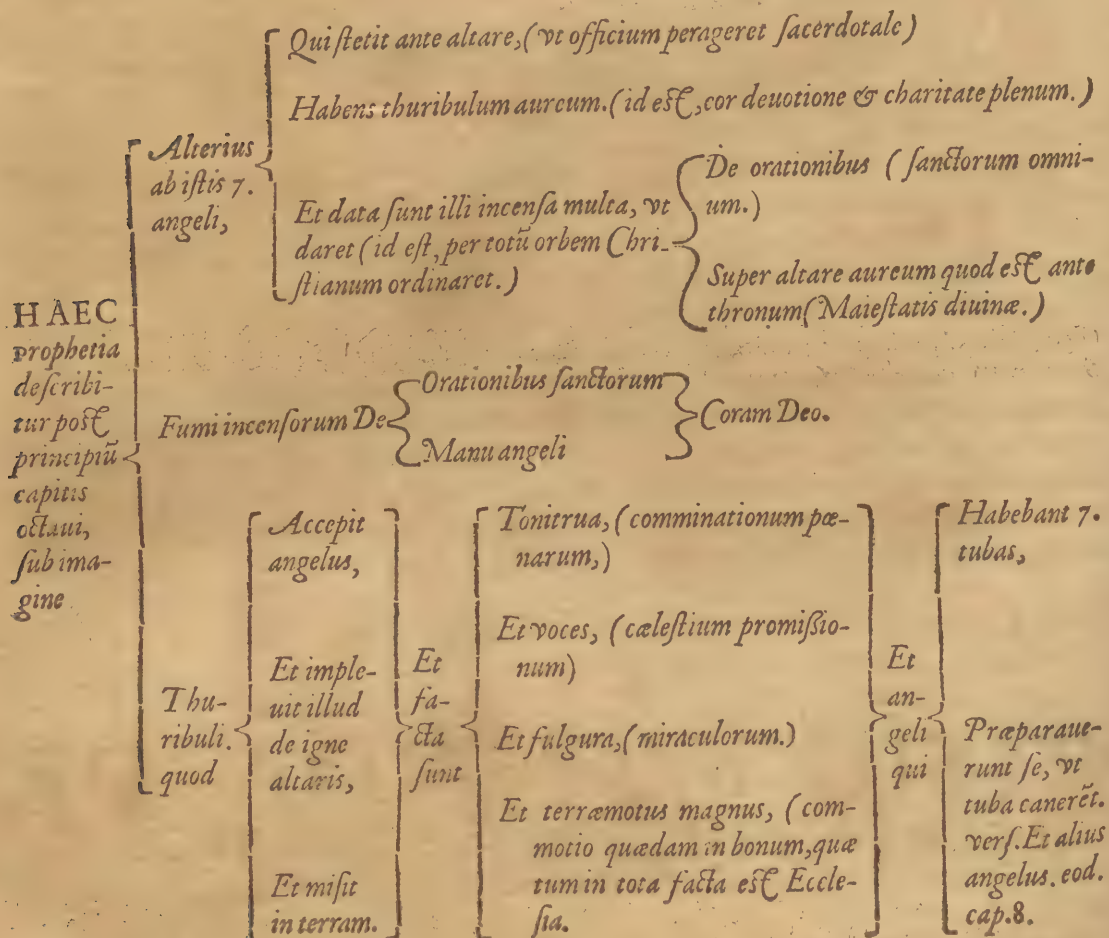 HAEC
prophetia
deſcribi-
tur poſt
principiũ
capitis
octaui,
ſub ima-
gine
Alterius
ab iſtis 7.
angeli,
Qui ſtetit ante altare, (vt officium perageret ſacerdotale)
Habens thuribulum aureum. (id eſt, cor deuotione & charitate plenum.)
Et data ſunt illi incenſa multa, vt
daret (id eſt, per totũ orbem Chri-
ſtianum ordinaret.)
De orationibus (ſanctorum omni-
um.)
Super altare aureum quod eſt ante
thronum (Maieſtatis diuinæ.)
Fumi incenſorum De
Orationibus ſanctorum
Manu angeli
Coram Deo.
Thu-
ribuli.
quod
Accepit
angelus,
Et imple-
uit illud
de igne
altaris,
Et miſit
in terram.
Et
fa-
cta
ſunt
Tonitrua, (comminationum pœ-
narum,)
Et voces, (cæleſtium promiſsio-
num)
Et fulgura, (miraculorum.)
Et terræmotus magnus, (com-
motio quædam in bonum, quæ
tum in tota facta eſt Eccle-
ſia.
Et
an-
geli
qui
Habebant 7.
tubas,
Præparaue-
runt ſe, vt
tuba canerẽt.
verſ. Et alius
angelus. eod.
cap. 8.